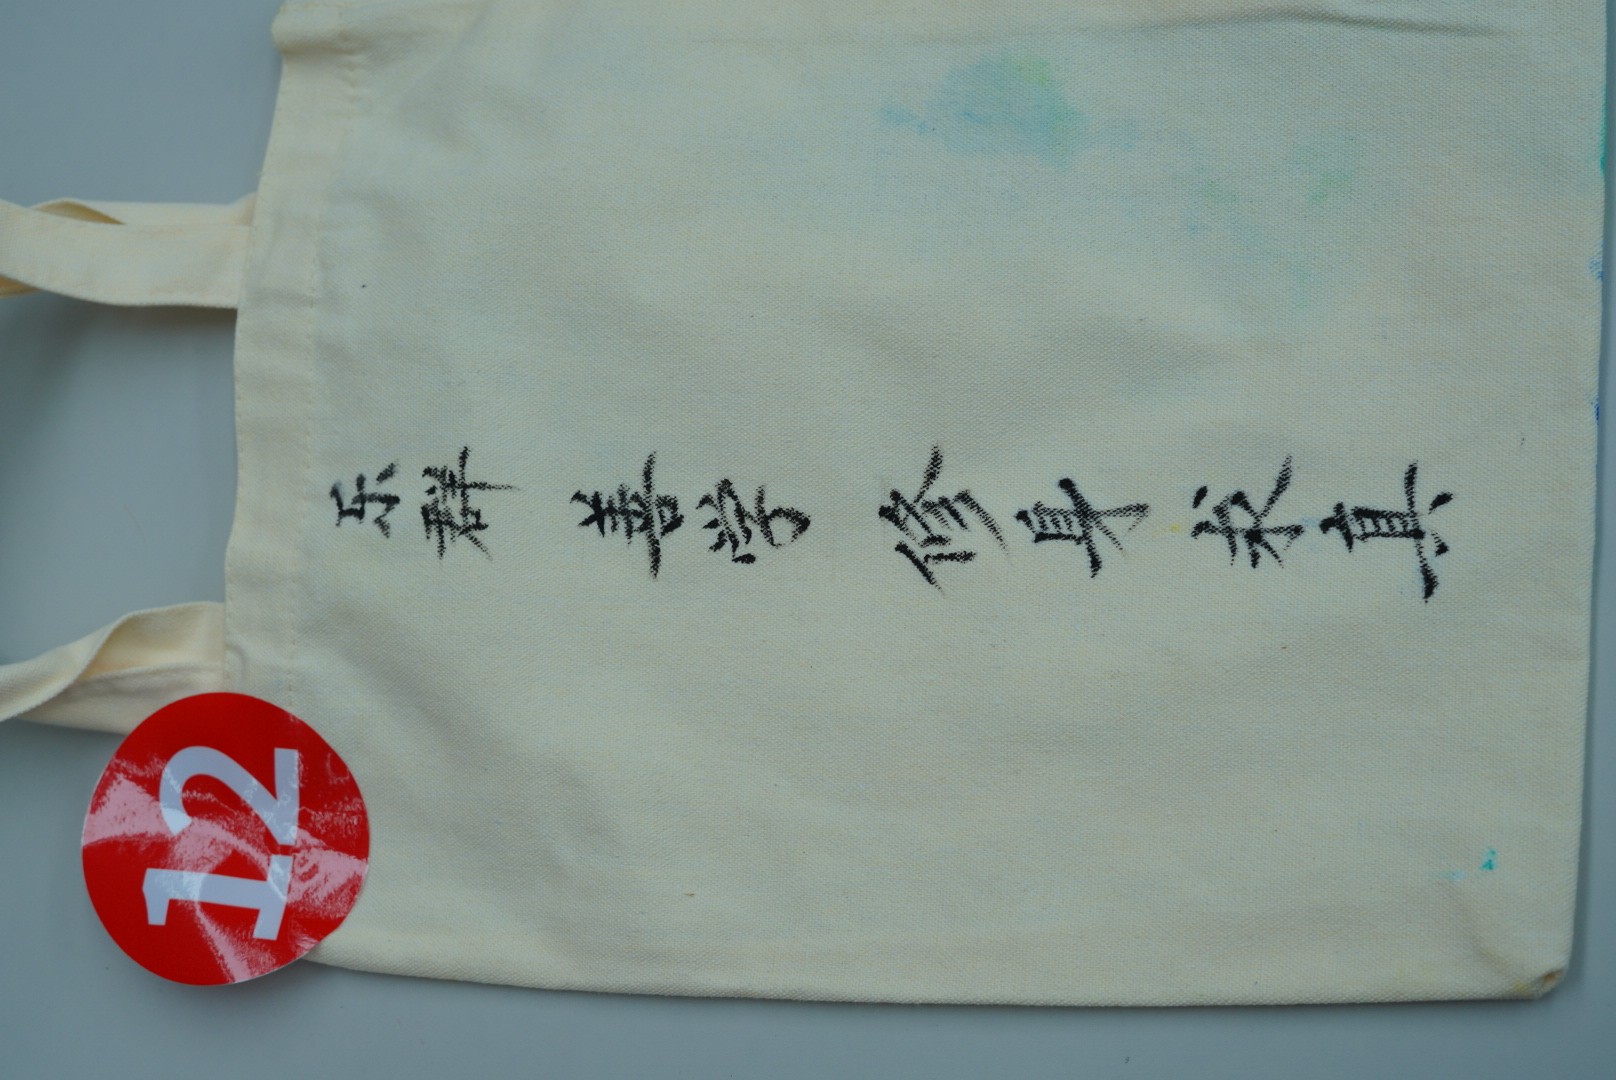 乐群 善学 修身 求真
12